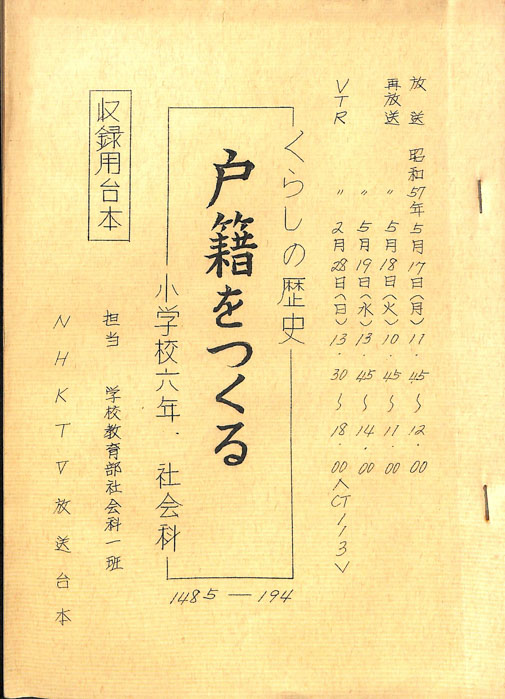 放送 昭和57年5月17日(月)11・45〜12・00
再放送 〃 5月18日(火)10・45〜11・00
〃 5月19日(水)13・45〜14・00
VTR 〃 2月28日(日)13・30〜18・00<CT113>
くらしの歴史
戸籍をつくる
小学校六年・社会科
収録用台本
担当 学校教育部社会科一班
NHKTV放送台本
1485—194